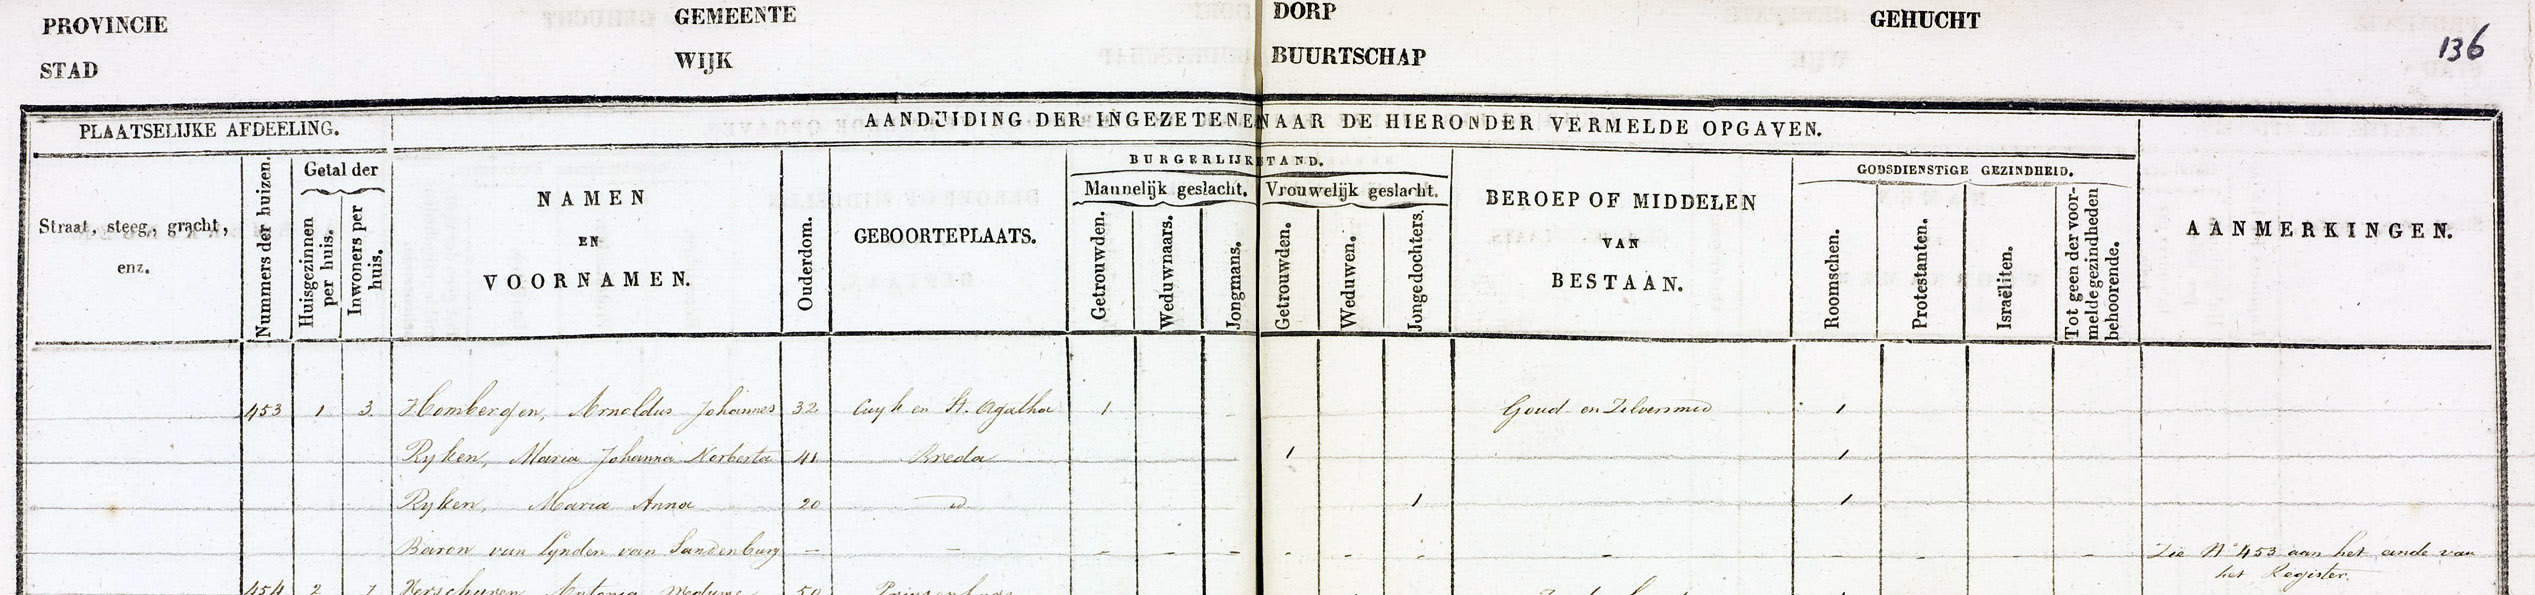 PROVINCIE GEMEENTE DORP GEHUCHT
STAD WIJK BUURTSCHAP 136
PLAATSELIJKE AFDEELING. AANDUIDING DER INGEZETENEN NAAR DE HIERONDER VERMELDE OPGAVEN.
Straat, steeg, gracht, enz.
Nummers der huizen.
Getal der
Huisgezinnen per huis.
Inwoners per huis.
NAMEN
EN
VOORNAMEN.
Ouderdom.
GEBOORTEPLAATS.
BURGERLIJKE STAND.
Mannelijk geslacht. Vrouwelijk geslacht.
Getrouwden.
Weduwnaars.
Jongmans.
Getrouwden.
Weduwen.
Jongedochters.
BEROEP OF MIDDELEN
VAN
BESTAAN.
GODSDIENSTIGE GEZINDHEID.
Roomschen.
Protestanten.
Israëliten.
Tot geen der voor-
melde gezindheden
behoorende.
AANMERKINGEN.
453 1 3 Hombergen, Arnoldus Johannes 32 Cuyk en St. Agatha 1 Goud en Zilversmid 1
Ryken, Maria Johanna Norberta 41 Breda 1 1
Ryken, Maria Anna 20 id 1 1
Baron van Lynden van Sandenburg - - - - - - - - - - - - - Zie N° 453 aan het einde van
het Register.
454 2 7 Verschuren Antonia Weduwe 50 Prinsenhage